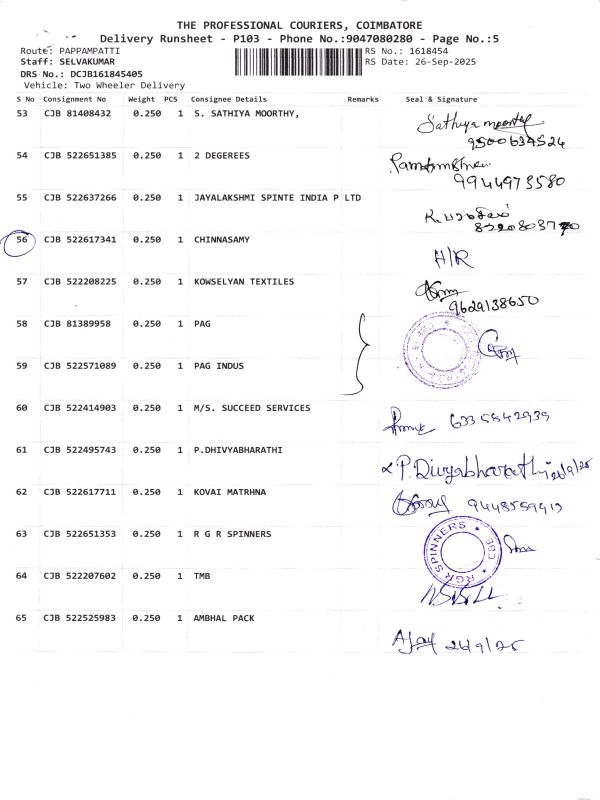 THE PROFESSIONAL COURIERS, COIMBATORE
Delivery Runsheet - P103 - Phone No.:9047080280 - Page No.:5
Route: PAPPAMPATTI RS No.: 1618454
Staff: SELVAKUMAR RS Date: 26-Sep-2025
DRS No.: DCJB161845405
Vehicle: Two Wheeler Delivery
S No Consignment No Weight PCS Consignee Details Remarks Seal & Signature
53 CJB 81408432 0.250 1 S. SATHIYA MOORTHY, Sathiya moorthy
9500634524
54 CJB 522651385 0.250 1 2 DEGEREES
9944973580
55 CJB 522637266 0.250 1 JAYALAKSHMI SPINTE INDIA P LTD
56 CJB 522617341 0.250 1 CHINNASAMY H/R
57 CJB 522208225 0.250 1 KOWSELYAN TEXTILES
9629138650
58 CJB 81389958 0.250 1 PAG
59 CJB 522571089 0.250 1 PAG INDUS
60 CJB 522414903 0.250 1 M/S. SUCCEED SERVICES
61 CJB 522495743 0.250 1 P.DHIVYABHARATHI P.Divyabharathi 26/9/25
62 CJB 522617711 0.250 1 KOVAI MATRHNA
63 CJB 522651353 0.250 1 R G R SPINNERS RGR SPINNERS CBE
64 CJB 522207602 0.250 1 TMB
65 CJB 522525983 0.250 1 AMBHAL PACK Ajay 26/9/25